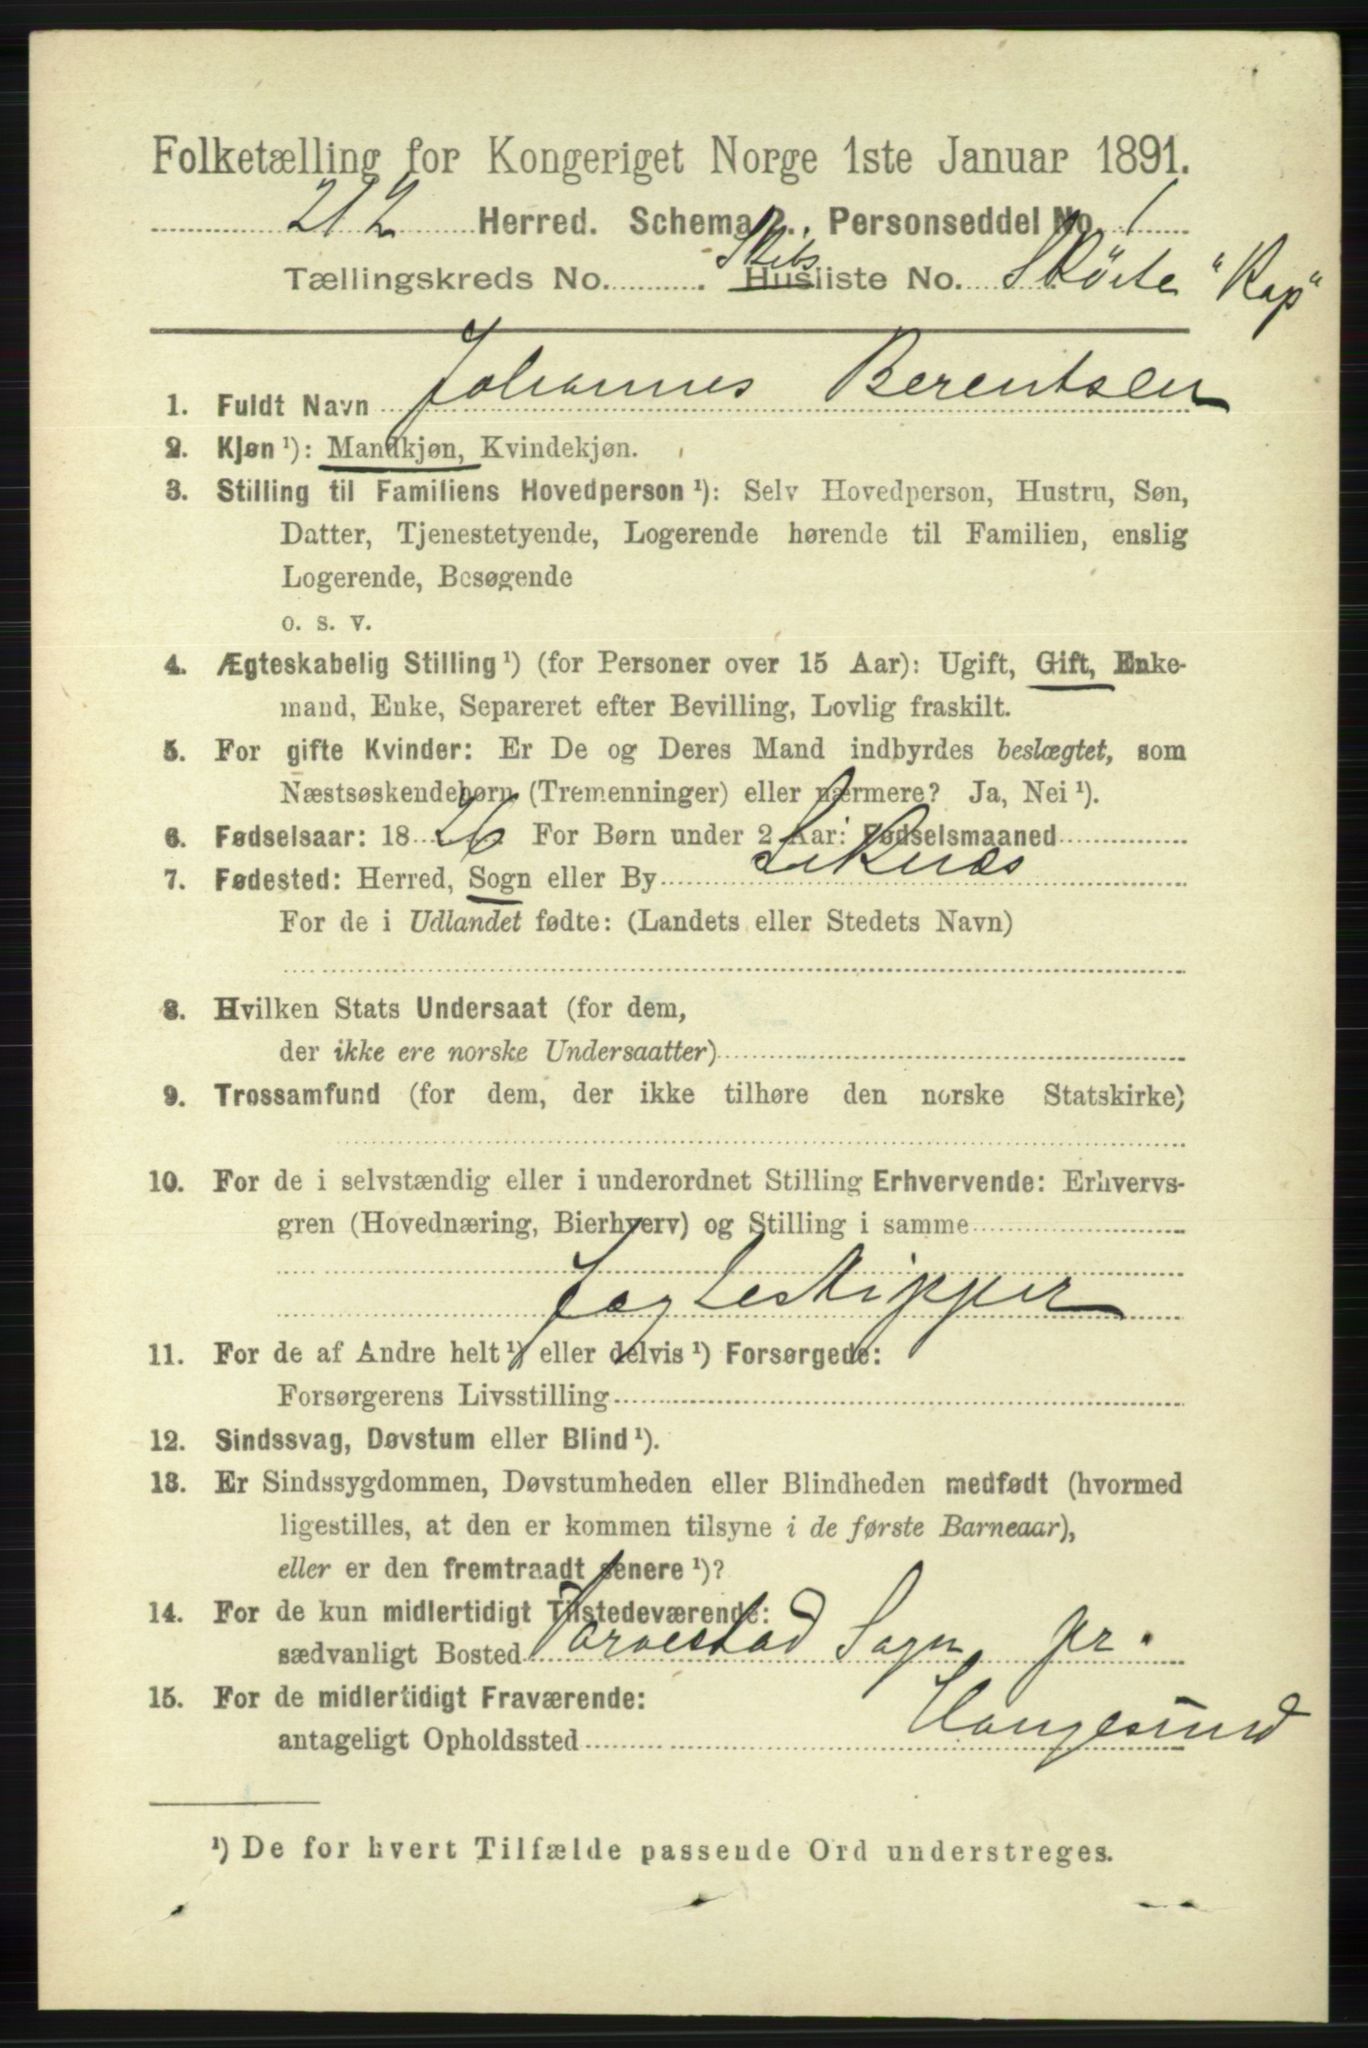 Folketælling for Kongeriget Norge 1ste Januar 1891.
212 Herred. Schema 2. Personseddel No. 1
Tællingskreds No. . Skibs Husliste No. Skøite "Kap"
1. Fuldt Navn Johannes Berentsen
2. Kjøn ¹): Mandkjøn, Kvindekjøn.
3. Stilling til Familiens Hovedperson ¹): Selv Hovedperson, Hustru, Søn,
Datter, Tjenestetyende, Logerende hørende til Familien, enslig
Logerende, Besøgende
o. s. v.
4. Ægteskabelig Stilling ¹) (for Personer over 15 Aar): Ugift, Gift, Enke-
mand, Enke, Separeret efter Bevilling, Lovlig fraskilt.
5. For gifte Kvinder: Er De og Deres Mand indbyrdes beslægtet, som
Næstsøskendebørn (Tremenninger) eller nærmere? Ja, Nei ¹).
6. Fødselsaar: 1826 For Børn under 2 Aar: Fødselsmaaned
7. Fødested: Herred, Sogn eller By Liknæs
For de i Udlandet fødte: (Landets eller Stedets Navn)
8. Hvilken Stats Undersaat (for dem,
der ikke ere norske Undersaatter)
9. Trossamfund (for dem, der ikke tilhøre den norske Statskirke)
10. For de i selvstændig eller i underordnet Stilling Erhvervende: Erhvervs-
gren (Hovednæring, Bierhverv) og Stilling i samme
Jagteskipper
11. For de af Andre helt ¹) eller delvis ¹) Forsørgede:
Forsørgerens Livsstilling
12. Sindssvag, Døvstum eller Blind ¹).
13. Er Sindssygdommen, Døvstumheden eller Blindheden medfødt (hvormed
ligestilles, at den er kommen tilsyne i de første Barneaar),
eller er den fremtraadt senere ¹)?
14. For de kun midlertidigt Tilstedeværende:
sædvanligt Bosted Torvestad Sogn pr.
15. For de midlertidigt Fraværende:
antageligt Opholdssted Haugesund
¹) De for hvert Tilfælde passende Ord understreges.